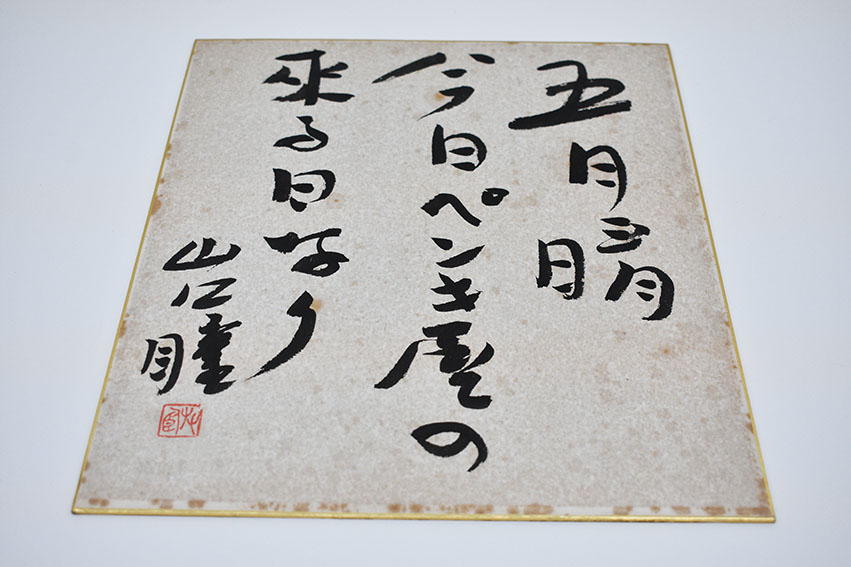 五月晴
今日ペンキ屋の
来る日なり
山口瞳